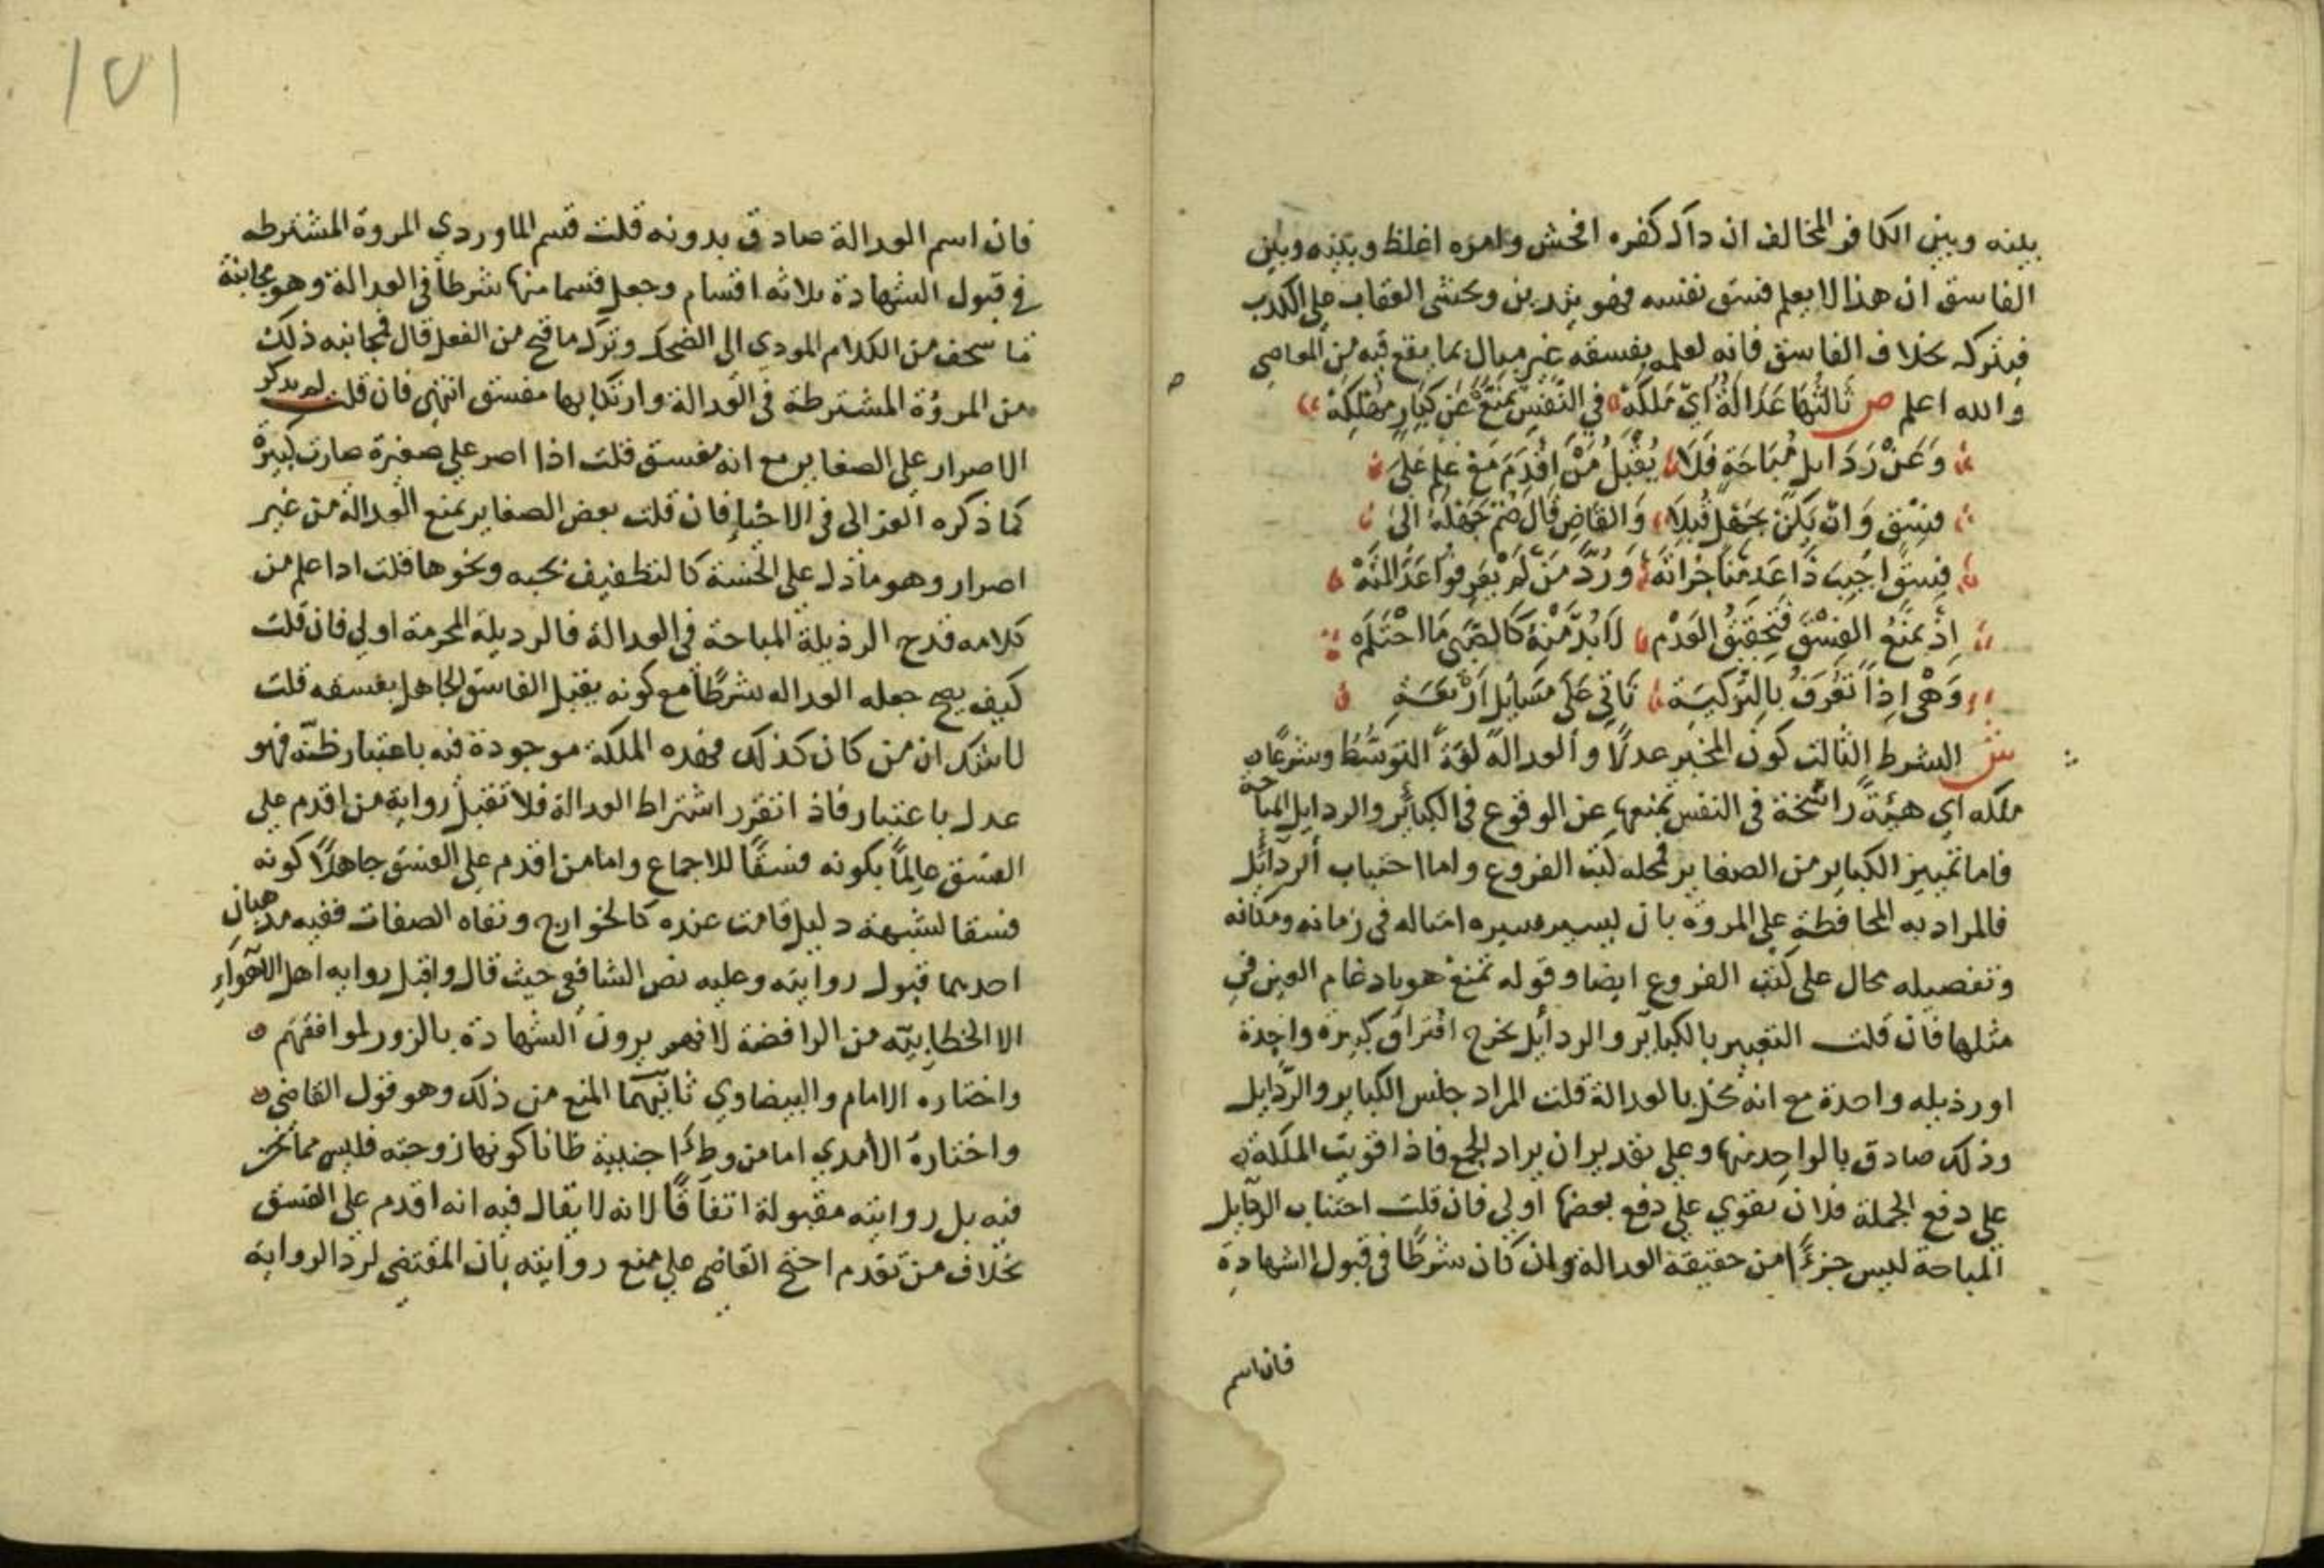 بينه وبين الكافر المخالف ان داك كفره افحش وامره اغلظ وبينه وبين
الفاسق ان هذا لا يعلم فسق نفسه فهو يتدين ويخشى العقاب على الكدب
فيتركه بخلاف الفاسق فانه لعلمه بفسقه غير مبال بما يقع فيه من المعاصي
والله اعلم ص ثَالِثُهَا عَدَالَةٌ اَيْ مَلَكَهْ فِي النَّفْسِ تَمْنَعُ عَنْ كَبَايِرٍ مُهْلِكَهْ
وَعَنْ رَذَايِلٍ مُبَاحَةٍ فَلَا يُقْبَلُ مَنْ اَقْدَمَ مَعْ عِلْمٍ عَلَى
فِسْقٍ وَانْ يَكُنْ بِجَهْلٍ قُبِلَا وَالقَاضِ قَالَ ضَمَّ جَهْلَهُ الى
فِسْقٍ اجِبْ ذَا عَدِمْنَا جُرْاتَهْ وَرُدَّ مَنْ لَمْ يَعْرِفُوا عَدَالَتَهْ
اِذْ يَمْنَعُ الفِسْقَ فَتَحْقِيقُ العَدَمْ لَا بُدَّ مِنْهُ كَالصَّبِي مَا احْتَلَمْ
وَهْىَ اِذًا تُعْرَفُ بِالتَّزْكِيَةِ تَاتِي عَلَى مَسَايِلٍ اَرْبَعَةِ
ش الشرط الثالث كون المخبر عدلًا والعدالة لغة التوسط وشرعًا
ملكه اي هيئة راسخة في النفس تمنعها عن الوقوع في الكبائر والردايل المباحة
فاما تمييز الكباير من الصغاير فمحله كتب الفروع واما اجتناب الردائل
فالمراد به المحافظة على المروة بان يسير سيره امثاله في زمانه ومكانه
وتفصيله محال على كتب الفروع ايضا وقوله تمنع هو بادغام العين في
مثلها فان قلت التعبير بالكبائر والردائل يخرج اقتراف كبيرة واحدة
او رذيله واحدة مع انه مخل بالعدالة قلت المراد جنس الكباير والردايل
وذلك صادق بالواحد منها وعلى تقدير ان يراد الجمع فاذا قويت الملكة
على دفع الجملة فلان تقوي على دفع بعضها اولي فان قلت اجتناب الردايل
المباحة ليس جزءًا من حقيقة العدالة وان كان شرطًا في قبول الشهادة
فان اسم
١٥١
فان اسم العدالة صادق بدونه قلت قسم الماوردي المروة المشترطه
في قبول الشهادة ثلاثه اقسام وجعل قسما منها شرطًا في العدالة وهو مجانبة
ما سخف من الكلام المودي الى الضحك وترك ما قبح من الفعل قال فمجانبه ذلك
من المروؤة المشترطة في العدالة وارتكابها مفسق انتهى فان قلت لم يدكر
الاصرار على الصغاير مع انه مفسق قلت اذا اصر على صغيرة صارت كبيرة
كما ذكره الغزالى في الاحياء فان قلت بعض الصغاير يمنع العدالة من غير
اصرار وهو ما دل على الخسة كالتطفيف بحبه ونحوها قلت ادا علم من
كلامه قدح الرذيلة المباحة في العدالة فالرديله المحرمة اولي فان قلت
كيف يصح جعله العداله شرطًا مع كونه يقبل الفاسق الجاهل بفسقه قلت
لا شك ان من كان كذلك فهذه الملكة موجودة فيه باعتبار ظنه فهو
عدل باعتبار فاذا تقرر اشتراط العدالة فلا تقبل رواية من اقدم على
الفسق عالمًا بكونه فسقًا للاجماع واما من اقدم على الفسق جاهلًا كونه
فسقا لشبهة دليل قامت عنده كالخوارج ونفاه الصفات ففيه مدهبان
احدهما قبول روايته وعليه نص الشافعي حيث قال واقبل روايه اهل الاهواء
الا الخطابية من الرافضة لانهم يرون الشهادة بالزور لموافقهم
واختاره الامام والبيضاوي ثانيهما المنع من ذلك وهو قول القاضي
واختارهُ الأمدي اما من وطئ اجنبية ظانا كونها زوجته فليس مما نحن
فيه بل روايته مقبولة اتفاقًا لانه لا يقال فيه انه اقدم على الفسق
بخلاف من تقدم احتج القاضي على منع روايته بان المقتضي لرد الرواية